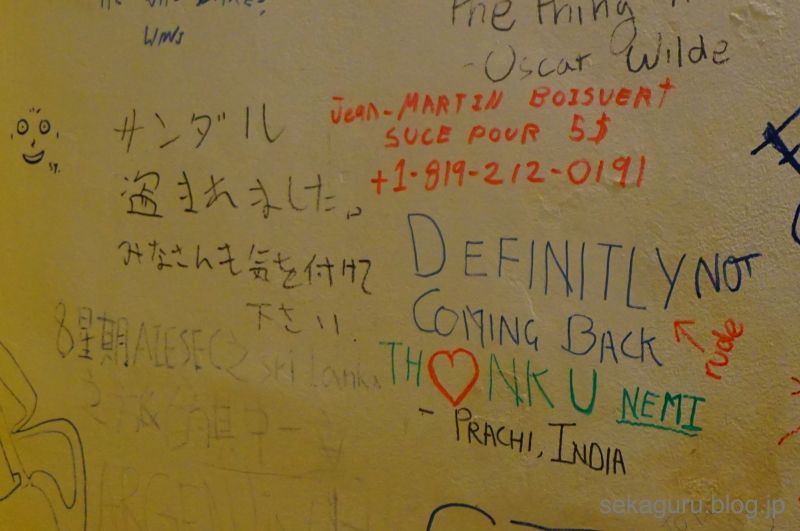 the thing
- Oscar Wilde
WMS
Jean-MARTIN BOISVERT
SUCE POUR 5$
+1-819-212-0191
サンダル
盗まれました。
みなさんも気を付けて
下さい.
DEFINITLY NOT
COMING BACK
rude
TH♡NK U NEMI
- PRACHI, INDIA
8星期AIESEC之sri Lanka
ARGENTI
sekaguru.blog.jp